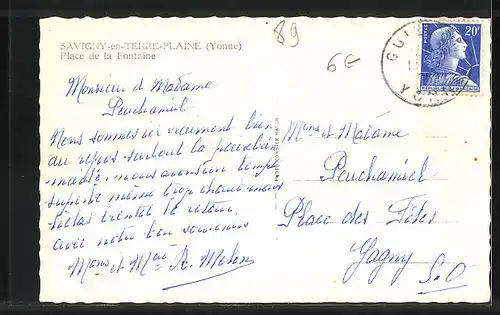 89
6€
SAVIGNY-en-TERRE-PLAINE (Yonne)
Place de la Fontaine
POSTES
20F
REPUBLIQUE FRANÇAISE
GUIL
YON
Monsieur et Madame
Peuchamiel
Nous sommes ici vraiment bien
au repos surtout la
nous avons un temps
superbe même trop chaud mais
hélas bientôt le retour
avec notre bon souvenir
Mons et Mme R. Melon
Mons et Madame
Peuchamiel
Place des Fêtes
Gagny
S.O